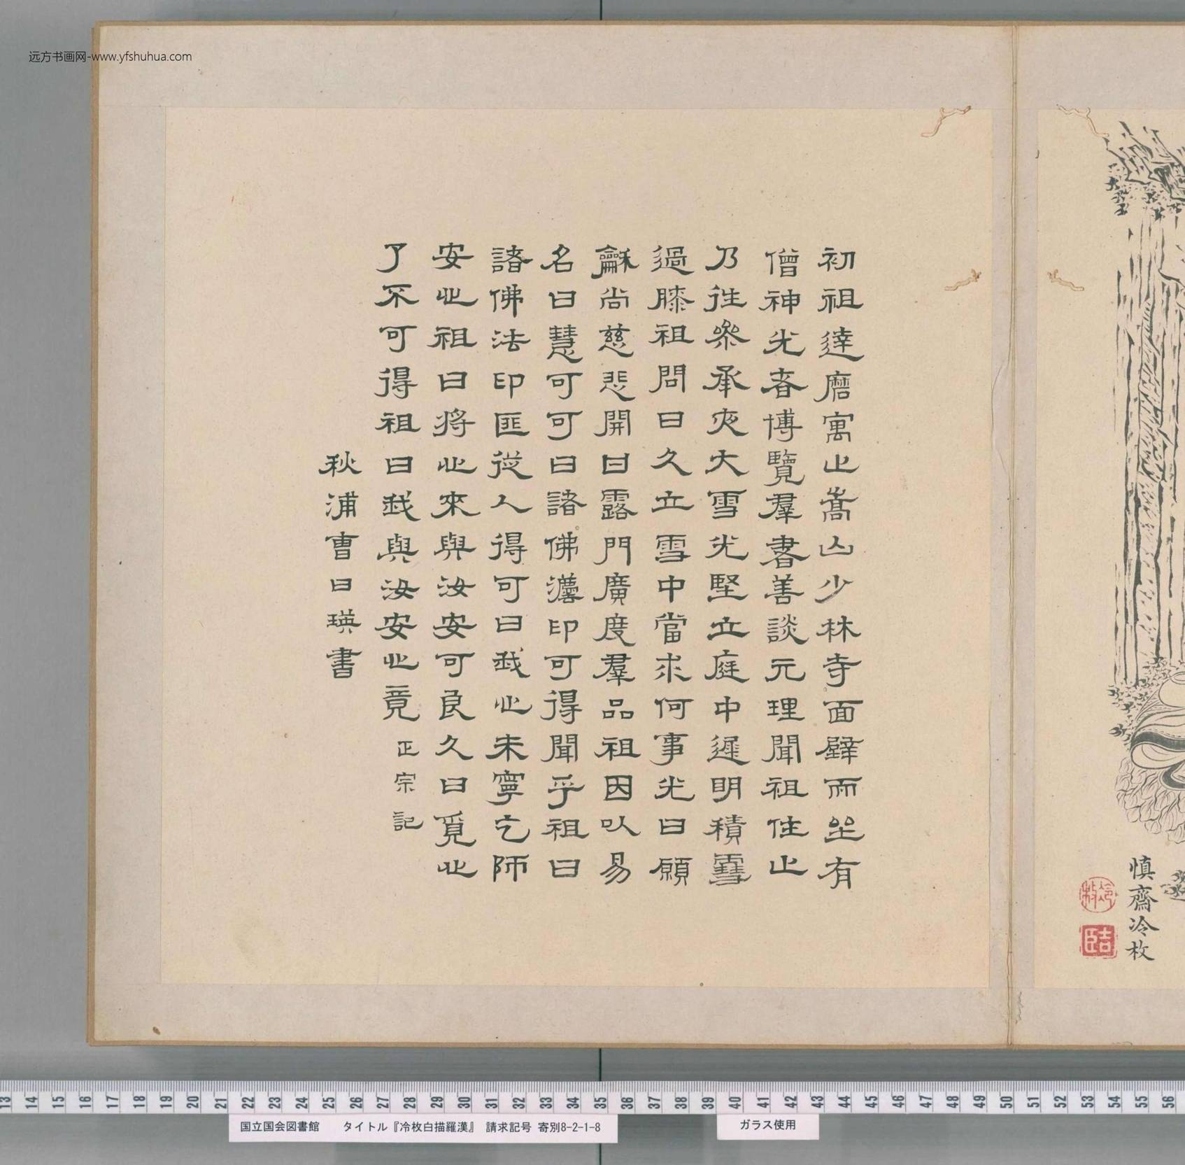 远方书画网-www.yfshuhua.com
初祖達磨寓止嵩山少林寺面壁而坐有
僧神光者博覽羣書善談元理聞祖住止
乃往參承夜大雪光堅立庭中遲明積雪
過膝祖問曰久立雪中當求何事光曰願
龢尚慈悲開甘露門廣度羣品祖因以易
名曰慧可可曰諸佛灋印可得聞乎祖曰
諸佛法印匪從人得可曰我心未寧乞師
安心祖曰將心來與汝安可良久曰覓心
了不可得祖曰我與汝安心竟 正宗記
秋浦曹曰瑛書
慎齋冷枚
冷枚
吉臣
13 14 15 16 17 18 19 20 21 22 23 24 25 26 27 28 29 30 31 32 33 34 35 36 37 38 39 40 41 42 43 44 45 46 47 48 49 50 51 52 53 54 55 56
国立国会図書館 タイトル『冷枚白描羅漢』 請求記号 寄別8-2-1-8
ガラス使用